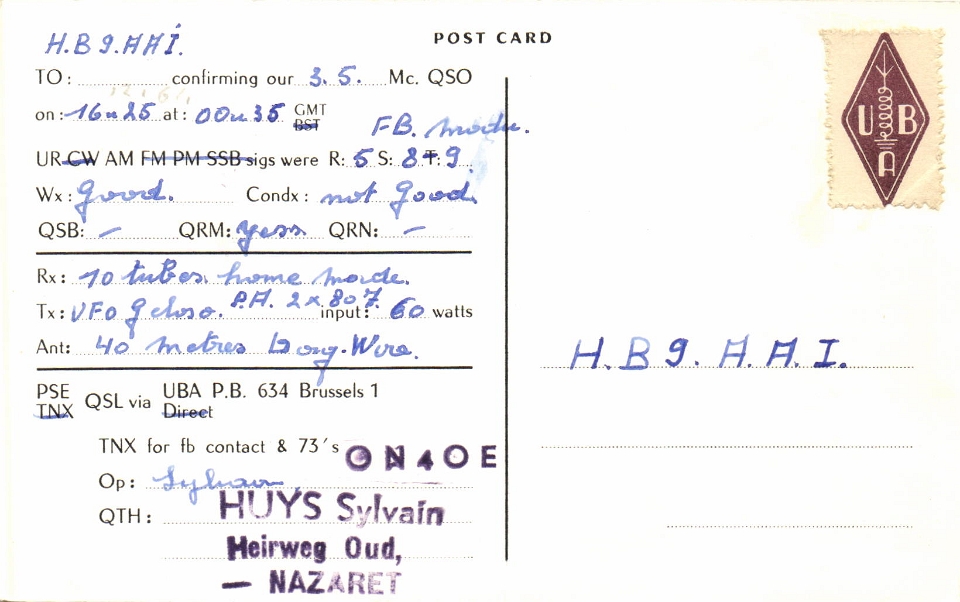 POST CARD
H.B9.AAI.
TO: confirming our 3.5. Mc. QSO
on: 16 25 at: 00 35 GMT BST
FB.
UR CW AM FM PM SSB sigs were R: 5 S: 8 T: 9
Wx: Good. Condx: not Good.
QSB: – QRM: yess QRN: –
Rx: 10 tubes home made.
Tx: VFO Geloso. P.A. 2x807 input: 60 watts
Ant: 40 metres Long. Wire.
PSE TNX QSL via UBA P.B. 634 Brussels 1
Direct
TNX for fb contact & 73's
ON4OE
Op: Sylvain
QTH: HUYS Sylvain
Heirweg Oud,
— NAZARET
UBA
H.B9.A.A.I.